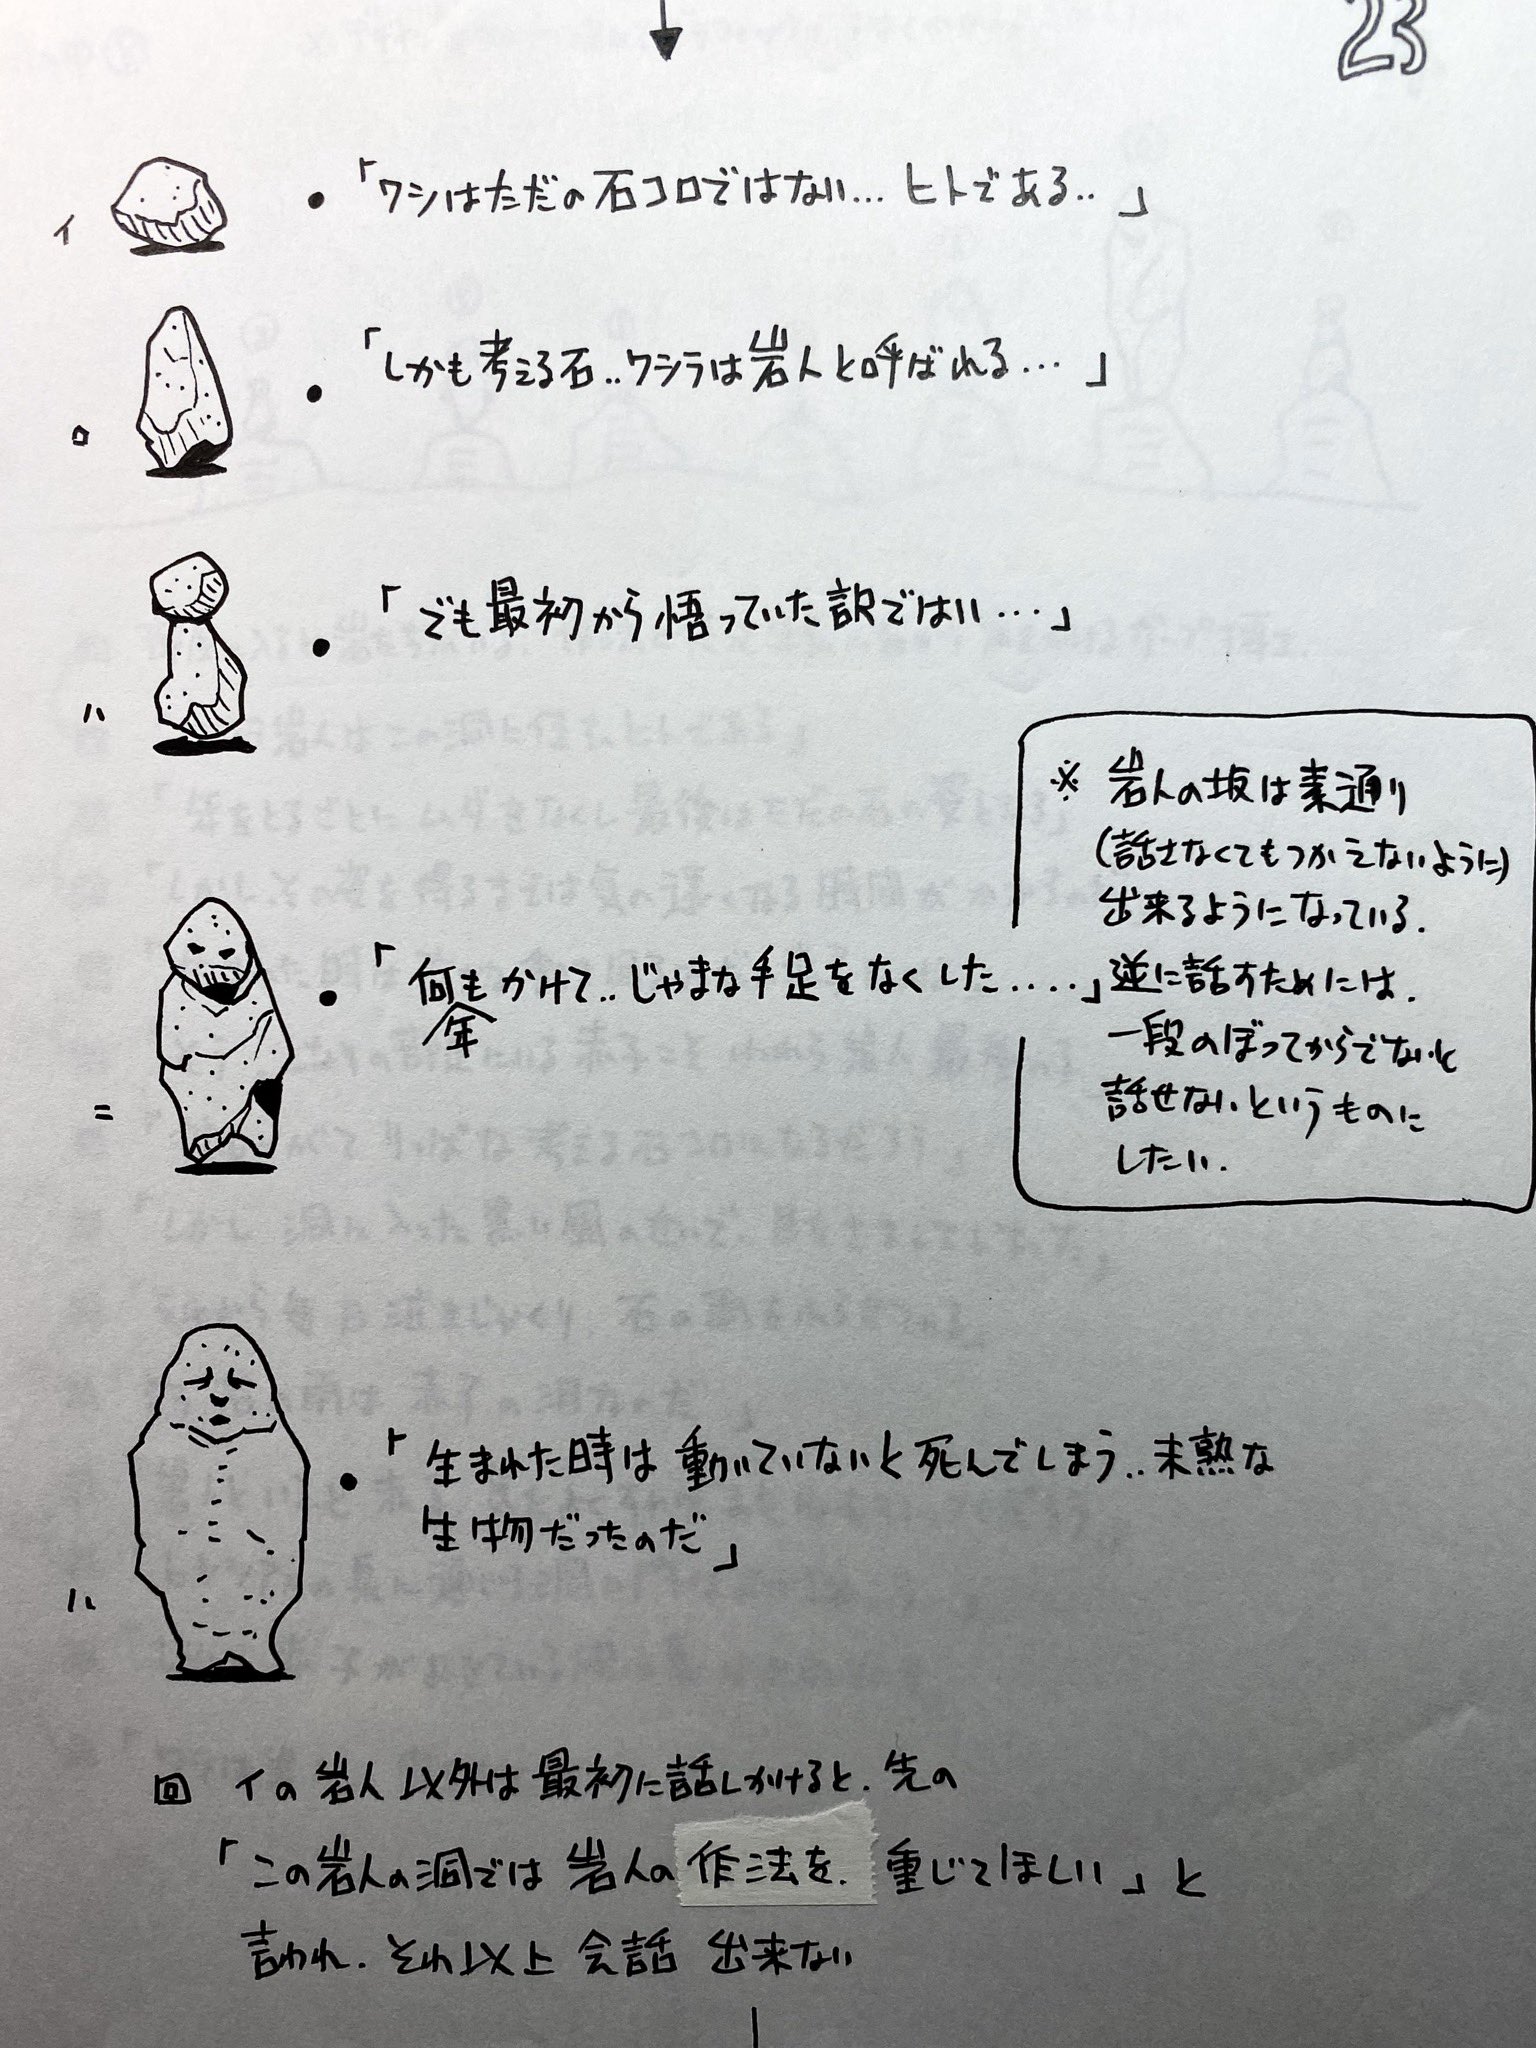 23
イ
・「ワシはただの石コロではない…ヒトである‥」
ロ
・「しかも考える石‥ワシラは岩人と呼ばれる…」
ハ
・「でも最初から悟っていた訳ではい…」
ニ
・「何もかけて‥じゃまな手足をなくした‥‥」
年
※ 岩人の坂は素通り
(話さなくてもつかえないように)
出来るようになっている.
逆に話すためには.
一段のぼってからでないと
話せないというものに
したい.
ハ
・「生まれた時は動いていないと死んでしまう‥未熟な
生物だったのだ」
回 イの岩人以外は最初に話しかけると.先の
「この岩人の洞では岩人の作法を.重じてほしい」と
言われ.それ以上会話出来ない